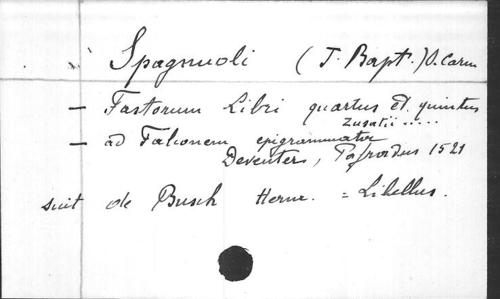 Spagnuoli (J. Bapt.) O. Carm
— Fastorum Libri quartus et quintus
Zusatii .....
— ad Falconem epigrammata
Deventer, Pafrordus 1521
suit de Busch Herm. = Libellus.